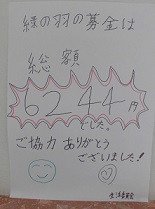 緑の羽の募金は
総額
6244円
でした。
ご協力ありがとう
ございました！